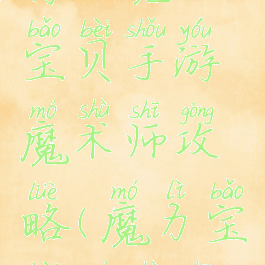 bǎo bèi shǒu yóu
宝贝手游
mó shù shī gōng
魔术师攻
lüè mó lì bǎo
略(魔力宝